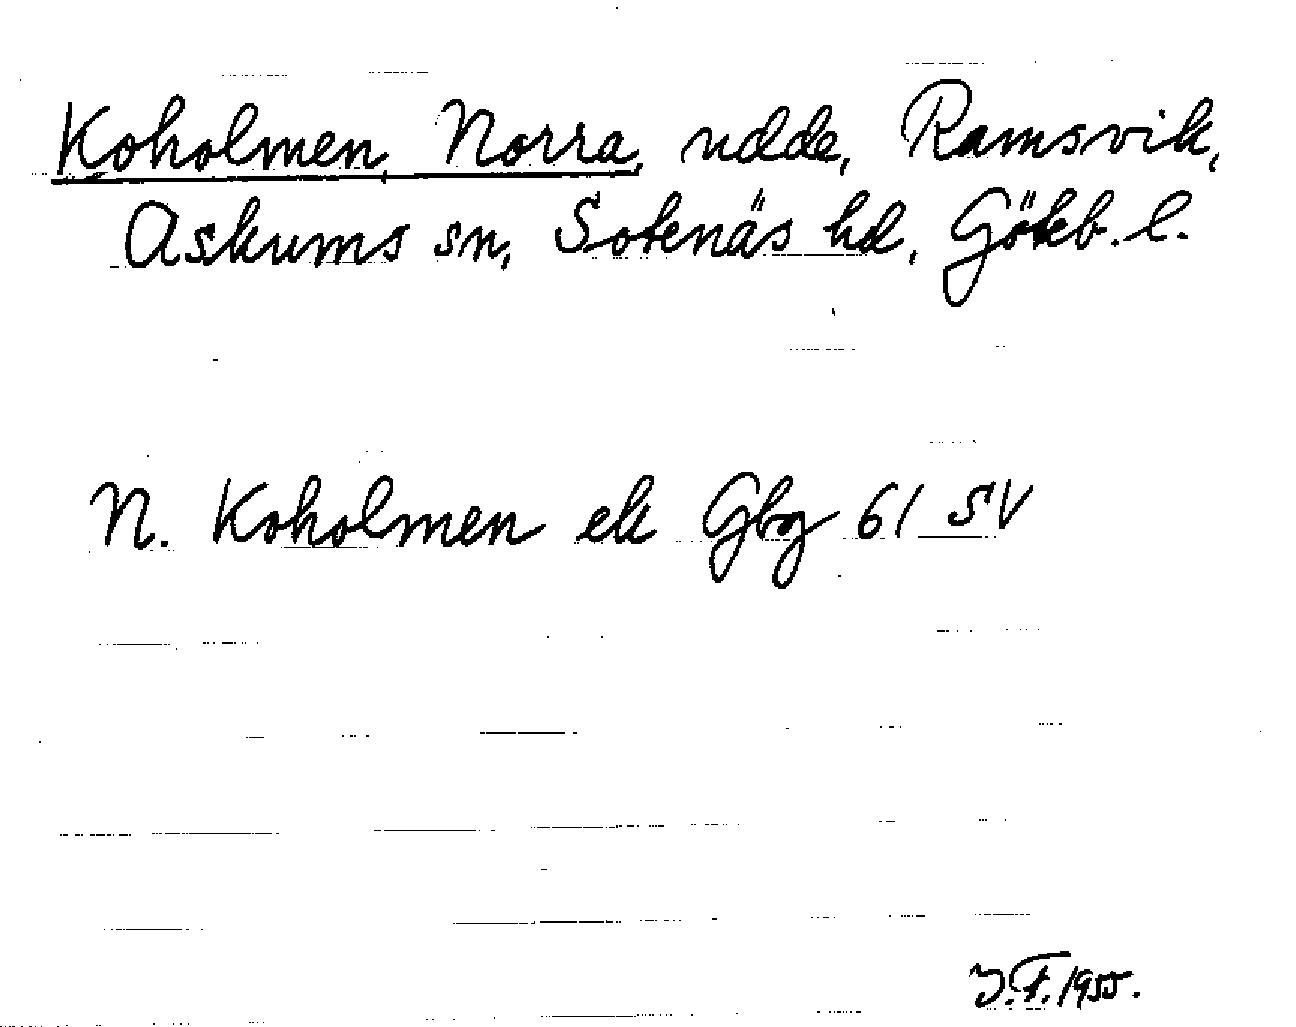 Koholmen, Norra, udde, Ramsvik,
Askums sn, Sotenäs hd, Göteb. l.
N. Koholmen ek Gbg 61 SV
J.F. 1955.